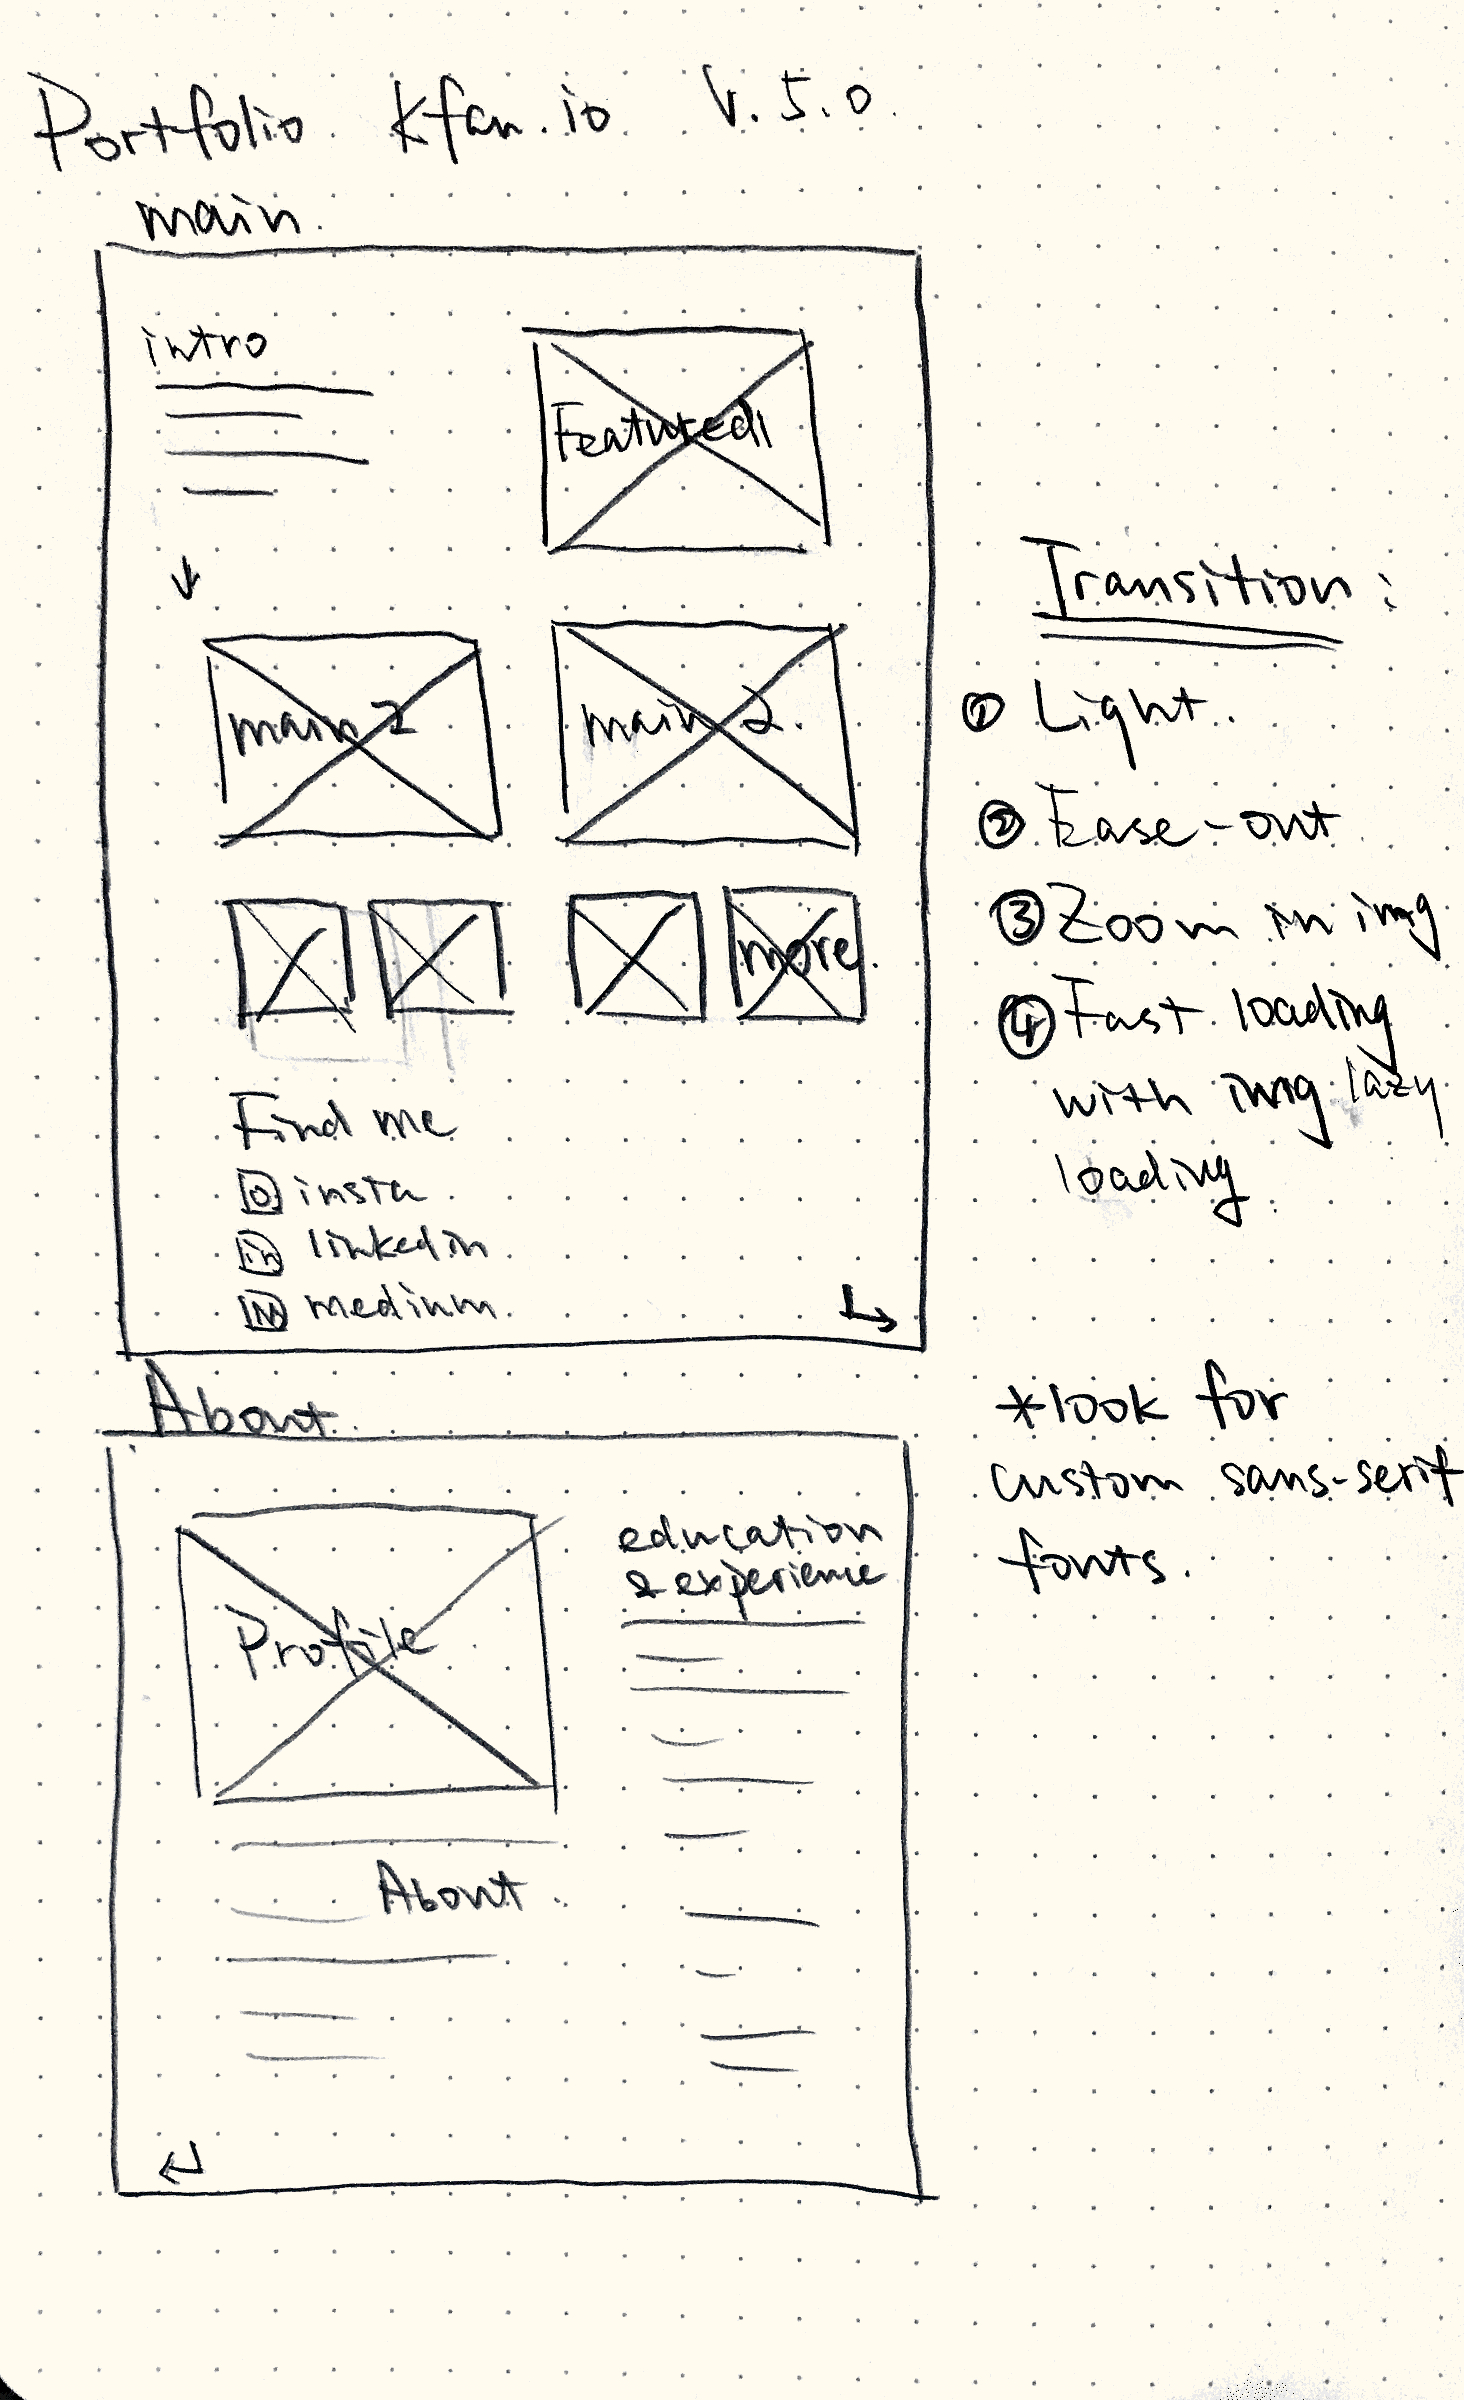 Portfolio kfan.io V.5.0.
main.
intro
Featured1
main 1
main 2.
more.
Find me
insta
in linkedin
M medium.
Transition:
① Light.
② Ease-out
③ Zoom in img
④ Fast loading
with img lazy
loading
About.
Profile
education
& experience
About.
*look for
custom sans-serif
fonts.